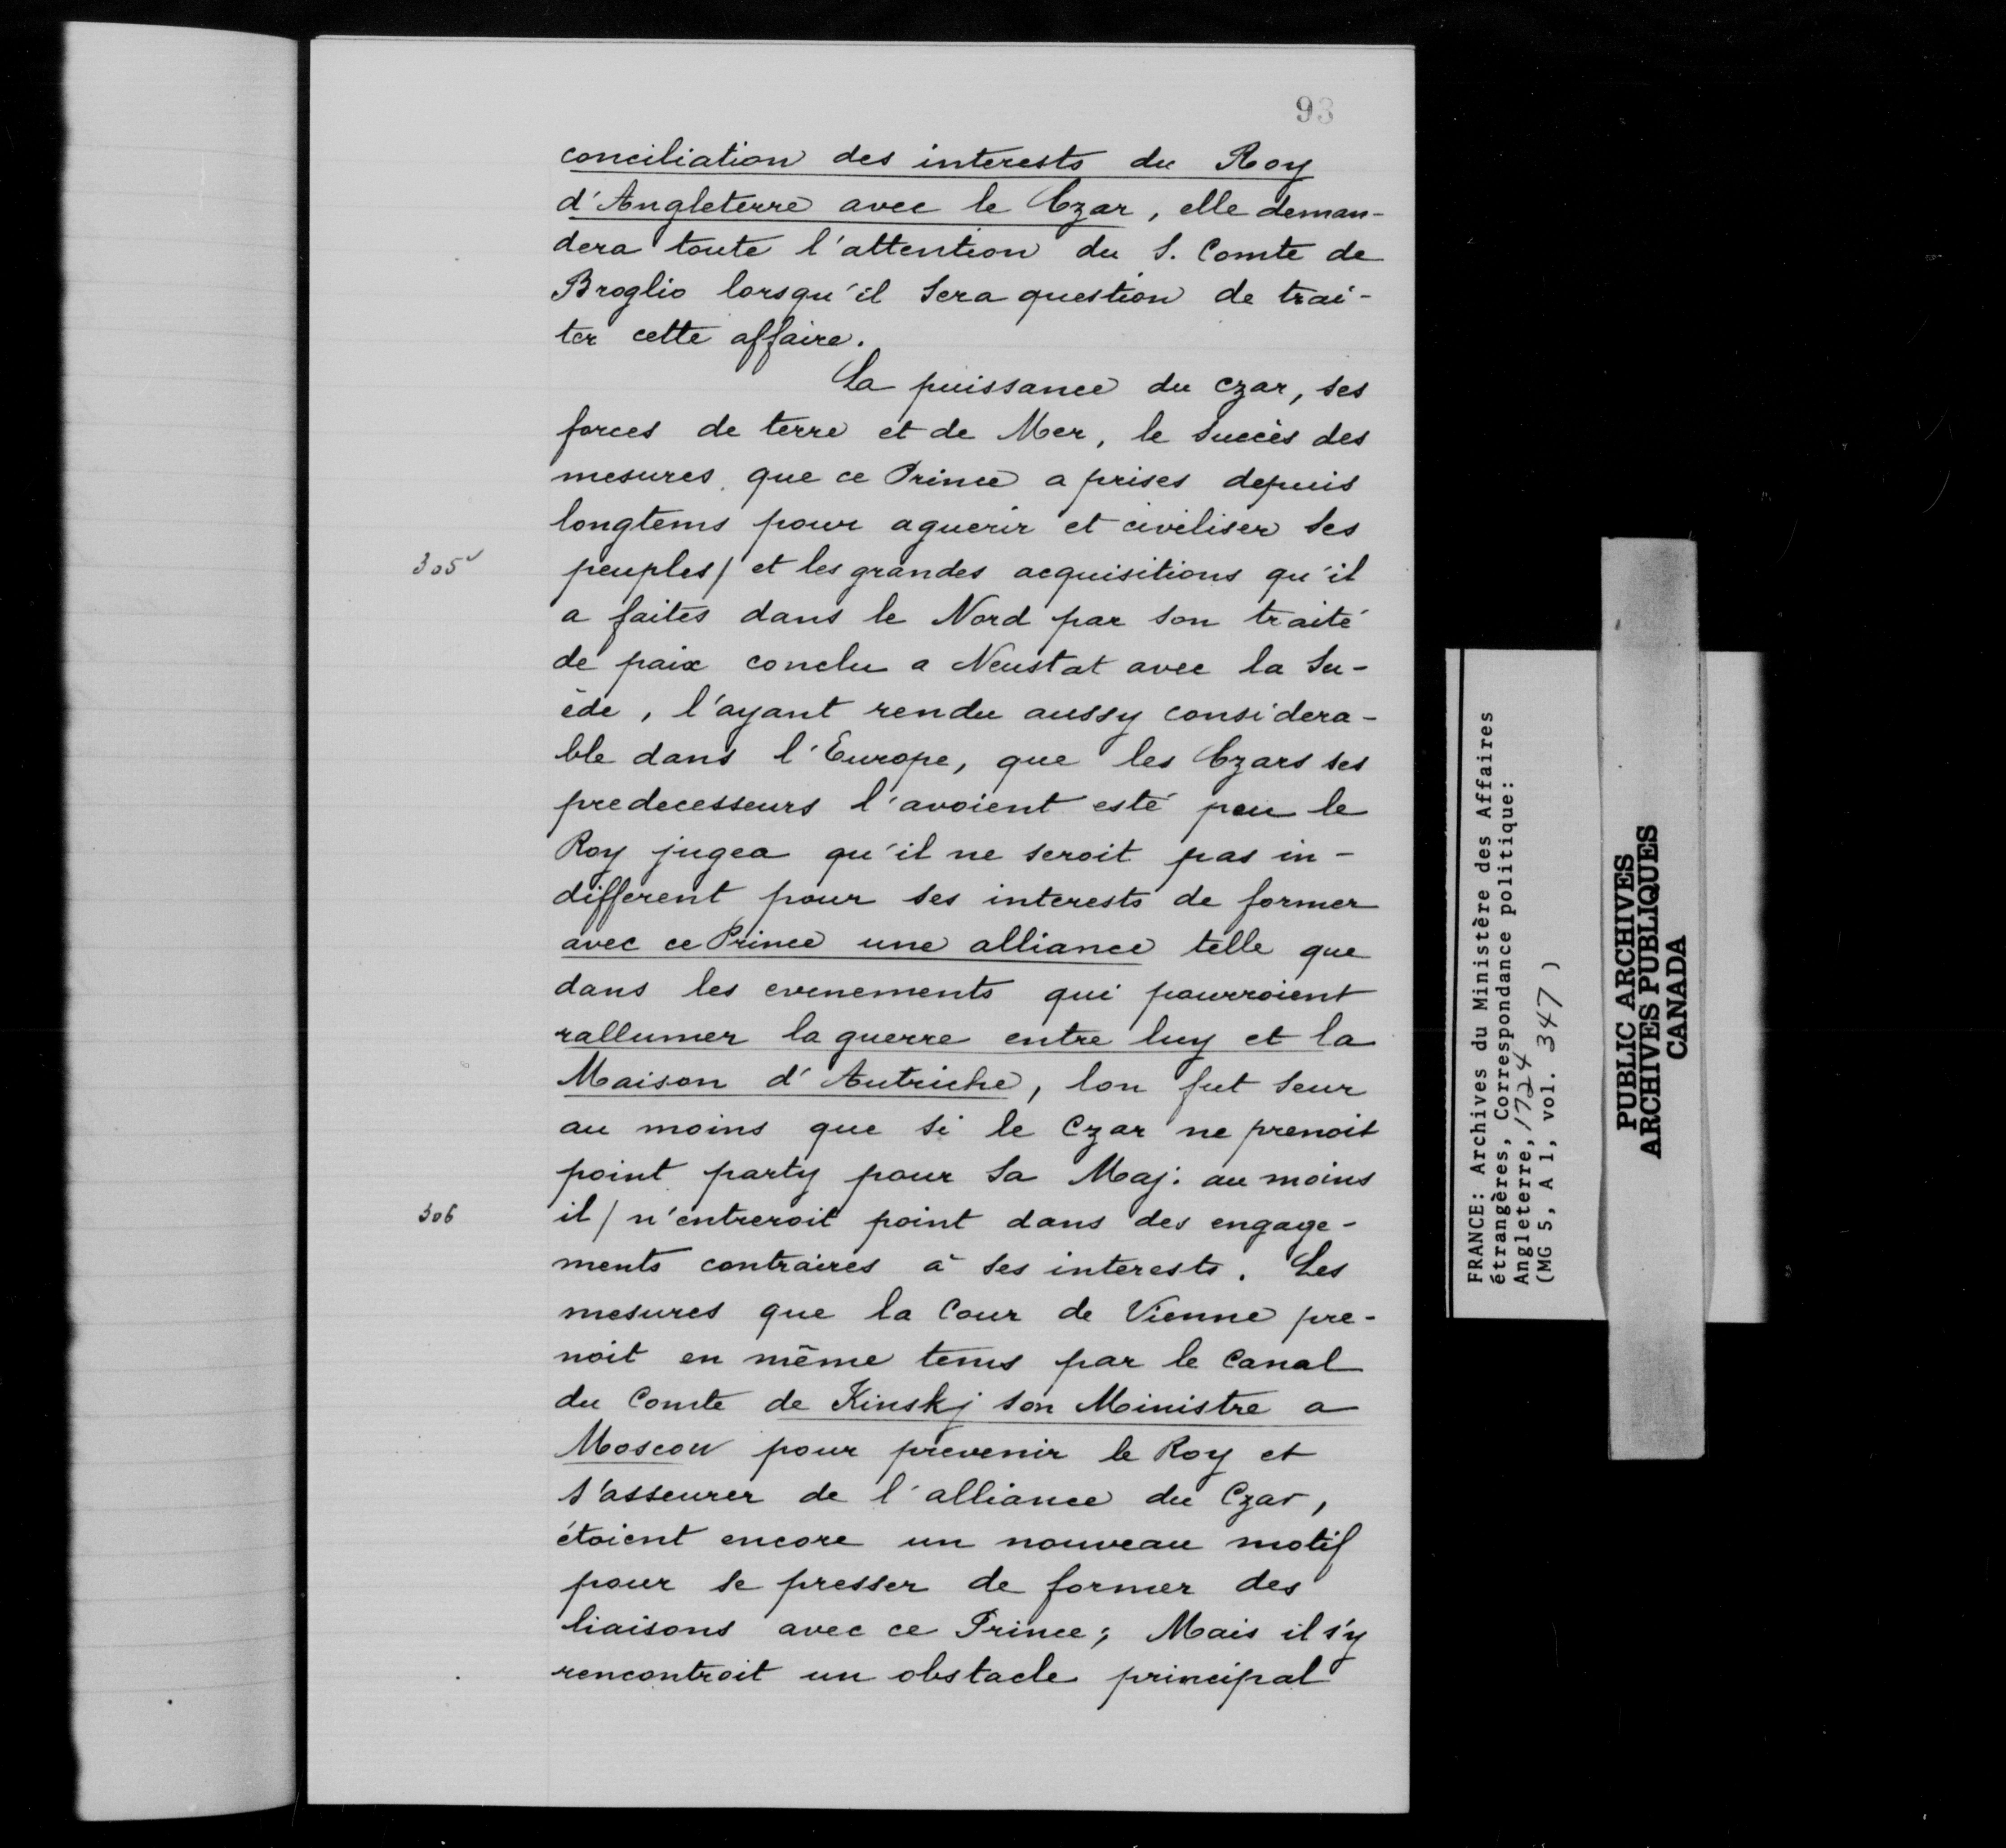 93
conciliation des interests du Roy
d'Angleterre avec le Czar, elle deman-
dera toute l'attention du S. Comte de
Broglio lorsqu'il sera question de trai-
ter cette affaire.
La puissance du czar, ses
forces de terre et de Mer, le succès des
mesures que ce Prince a prises depuis
longtems pour aguerir et civiliser ses
305v peuples/ et les grandes acquisitions qu'il
a faites dans le Nord par son traité
de paix conclu a Neustat avec la Su-
ède, l'ayant rendu aussy considera-
ble dans l'Europe, que les Czars ses
predecesseurs l'avoient esté peu le
Roy jugea qu'il ne seroit pas in-
different pour ses interests de former
avec ce Prince une alliance telle que
dans les evenements qui pourroient
rallumer la guerre entre luy et la
Maison d'Autriche, lon fut seur
au moins que si le Czar ne prenoit
point party pour sa Maj: au moins
306 il/ n'entreroit point dans des engage-
ments contraires à ses interests. Les
mesures que la Cour de Vienne pre-
noit en même tems par le Canal
du Comte de Kinskj son Ministre a
Moscou pour prevenir le Roy et
s'asseurer de l'alliance du Czar,
étoient encore un nouveau motif
pour se presser de former des
liaisons avec ce Prince; Mais il s'y
rencontroit un obstacle principal
FRANCE: Archives du Ministère des Affaires
étrangères, Correspondance politique:
Angleterre, 1724
(MG 5, A 1, vol. 347)
PUBLIC ARCHIVES
ARCHIVES PUBLIQUES
CANADA